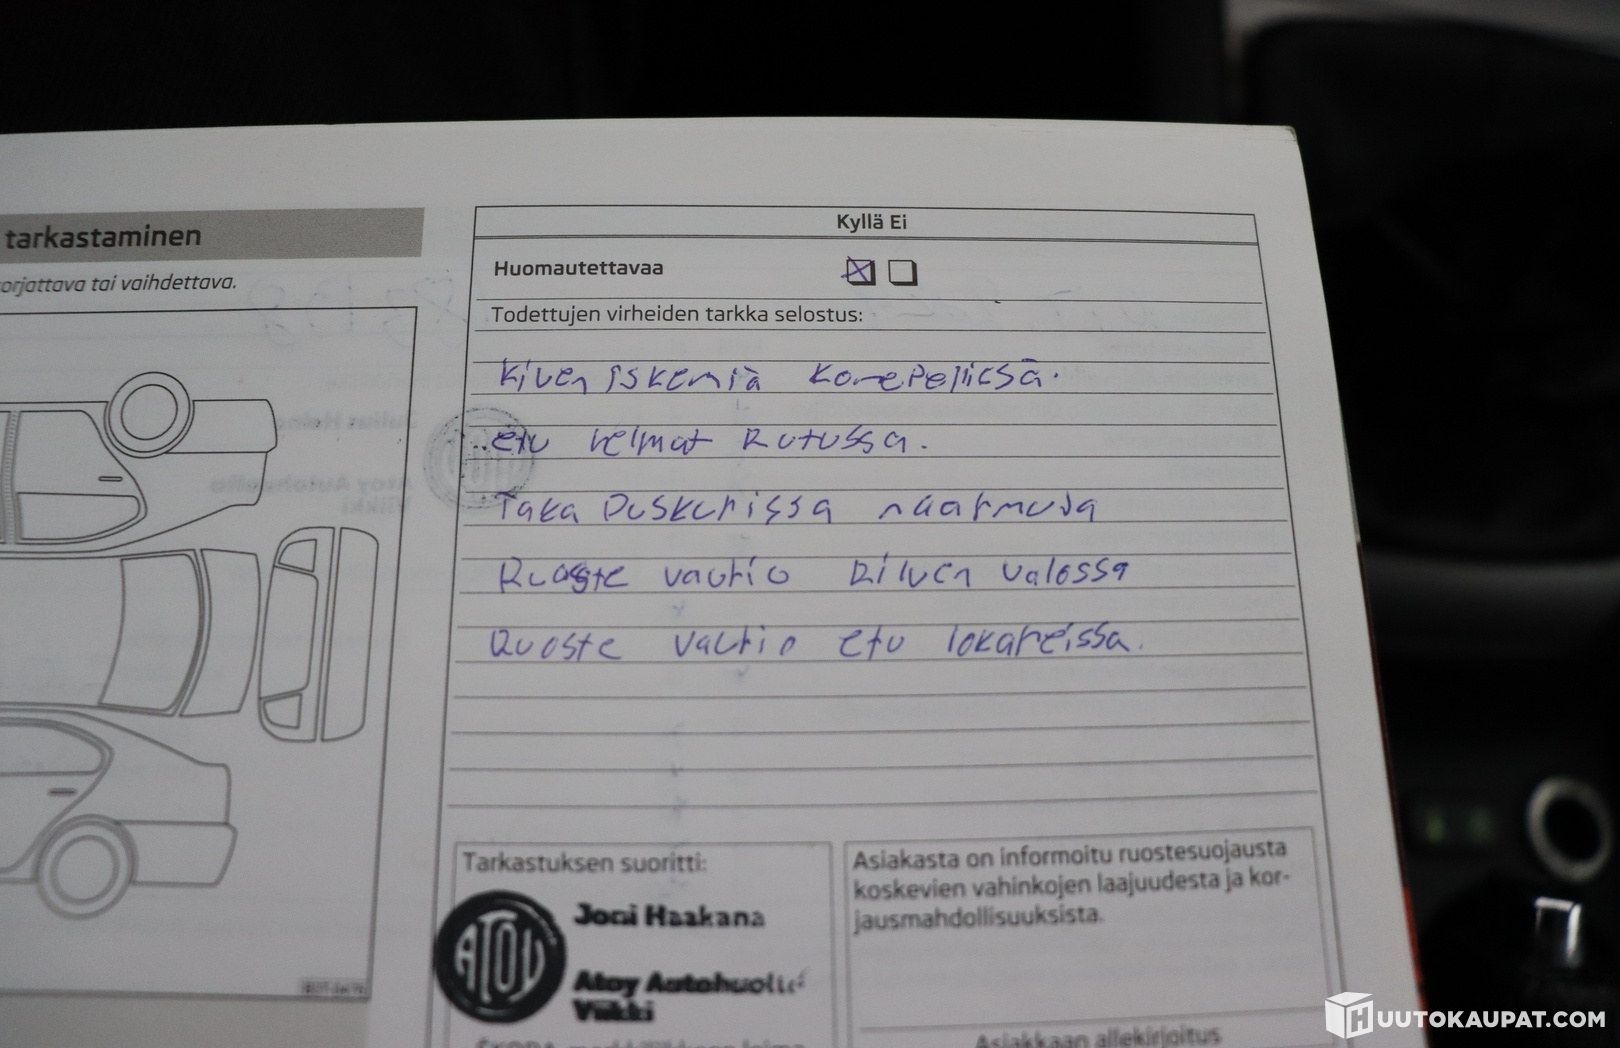 tarkastaminen
orjattava tai vaihdettava.
Kyllä Ei
Huomautettavaa
Todettujen virheiden tarkka selostus:
Kiven iskemiä konepellissä.
etu helmat Rutussa.
Taka Puskurissa naarmuja
Ruoste vaurio Kilven valossa
Ruoste vaurio etu lokareissa.
Tarkastuksen suoritti:
ATOY
Joni Haakana
Atoy Autohuolto
Viikki
Asiakasta on informoitu ruostesuojausta
koskevien vahinkojen laajuudesta ja kor-
jausmahdollisuuksista.
Asiakkaan allekirjoitus
HUUTOKAUPAT.COM